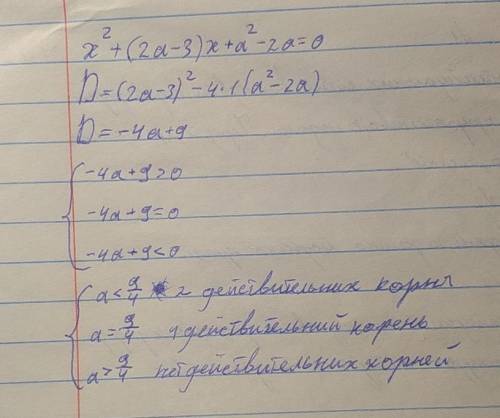 x² + (2a-3)x + a² - 2a = 0
D = (2a-3)² - 4·1(a² - 2a)
D = -4a + 9
-4a + 9 > 0
-4a + 9 = 0
-4a + 9 < 0
a < 9/4 2 действительных корня
a = 9/4 1 действительный корень
a > 9/4 нет действительных корней